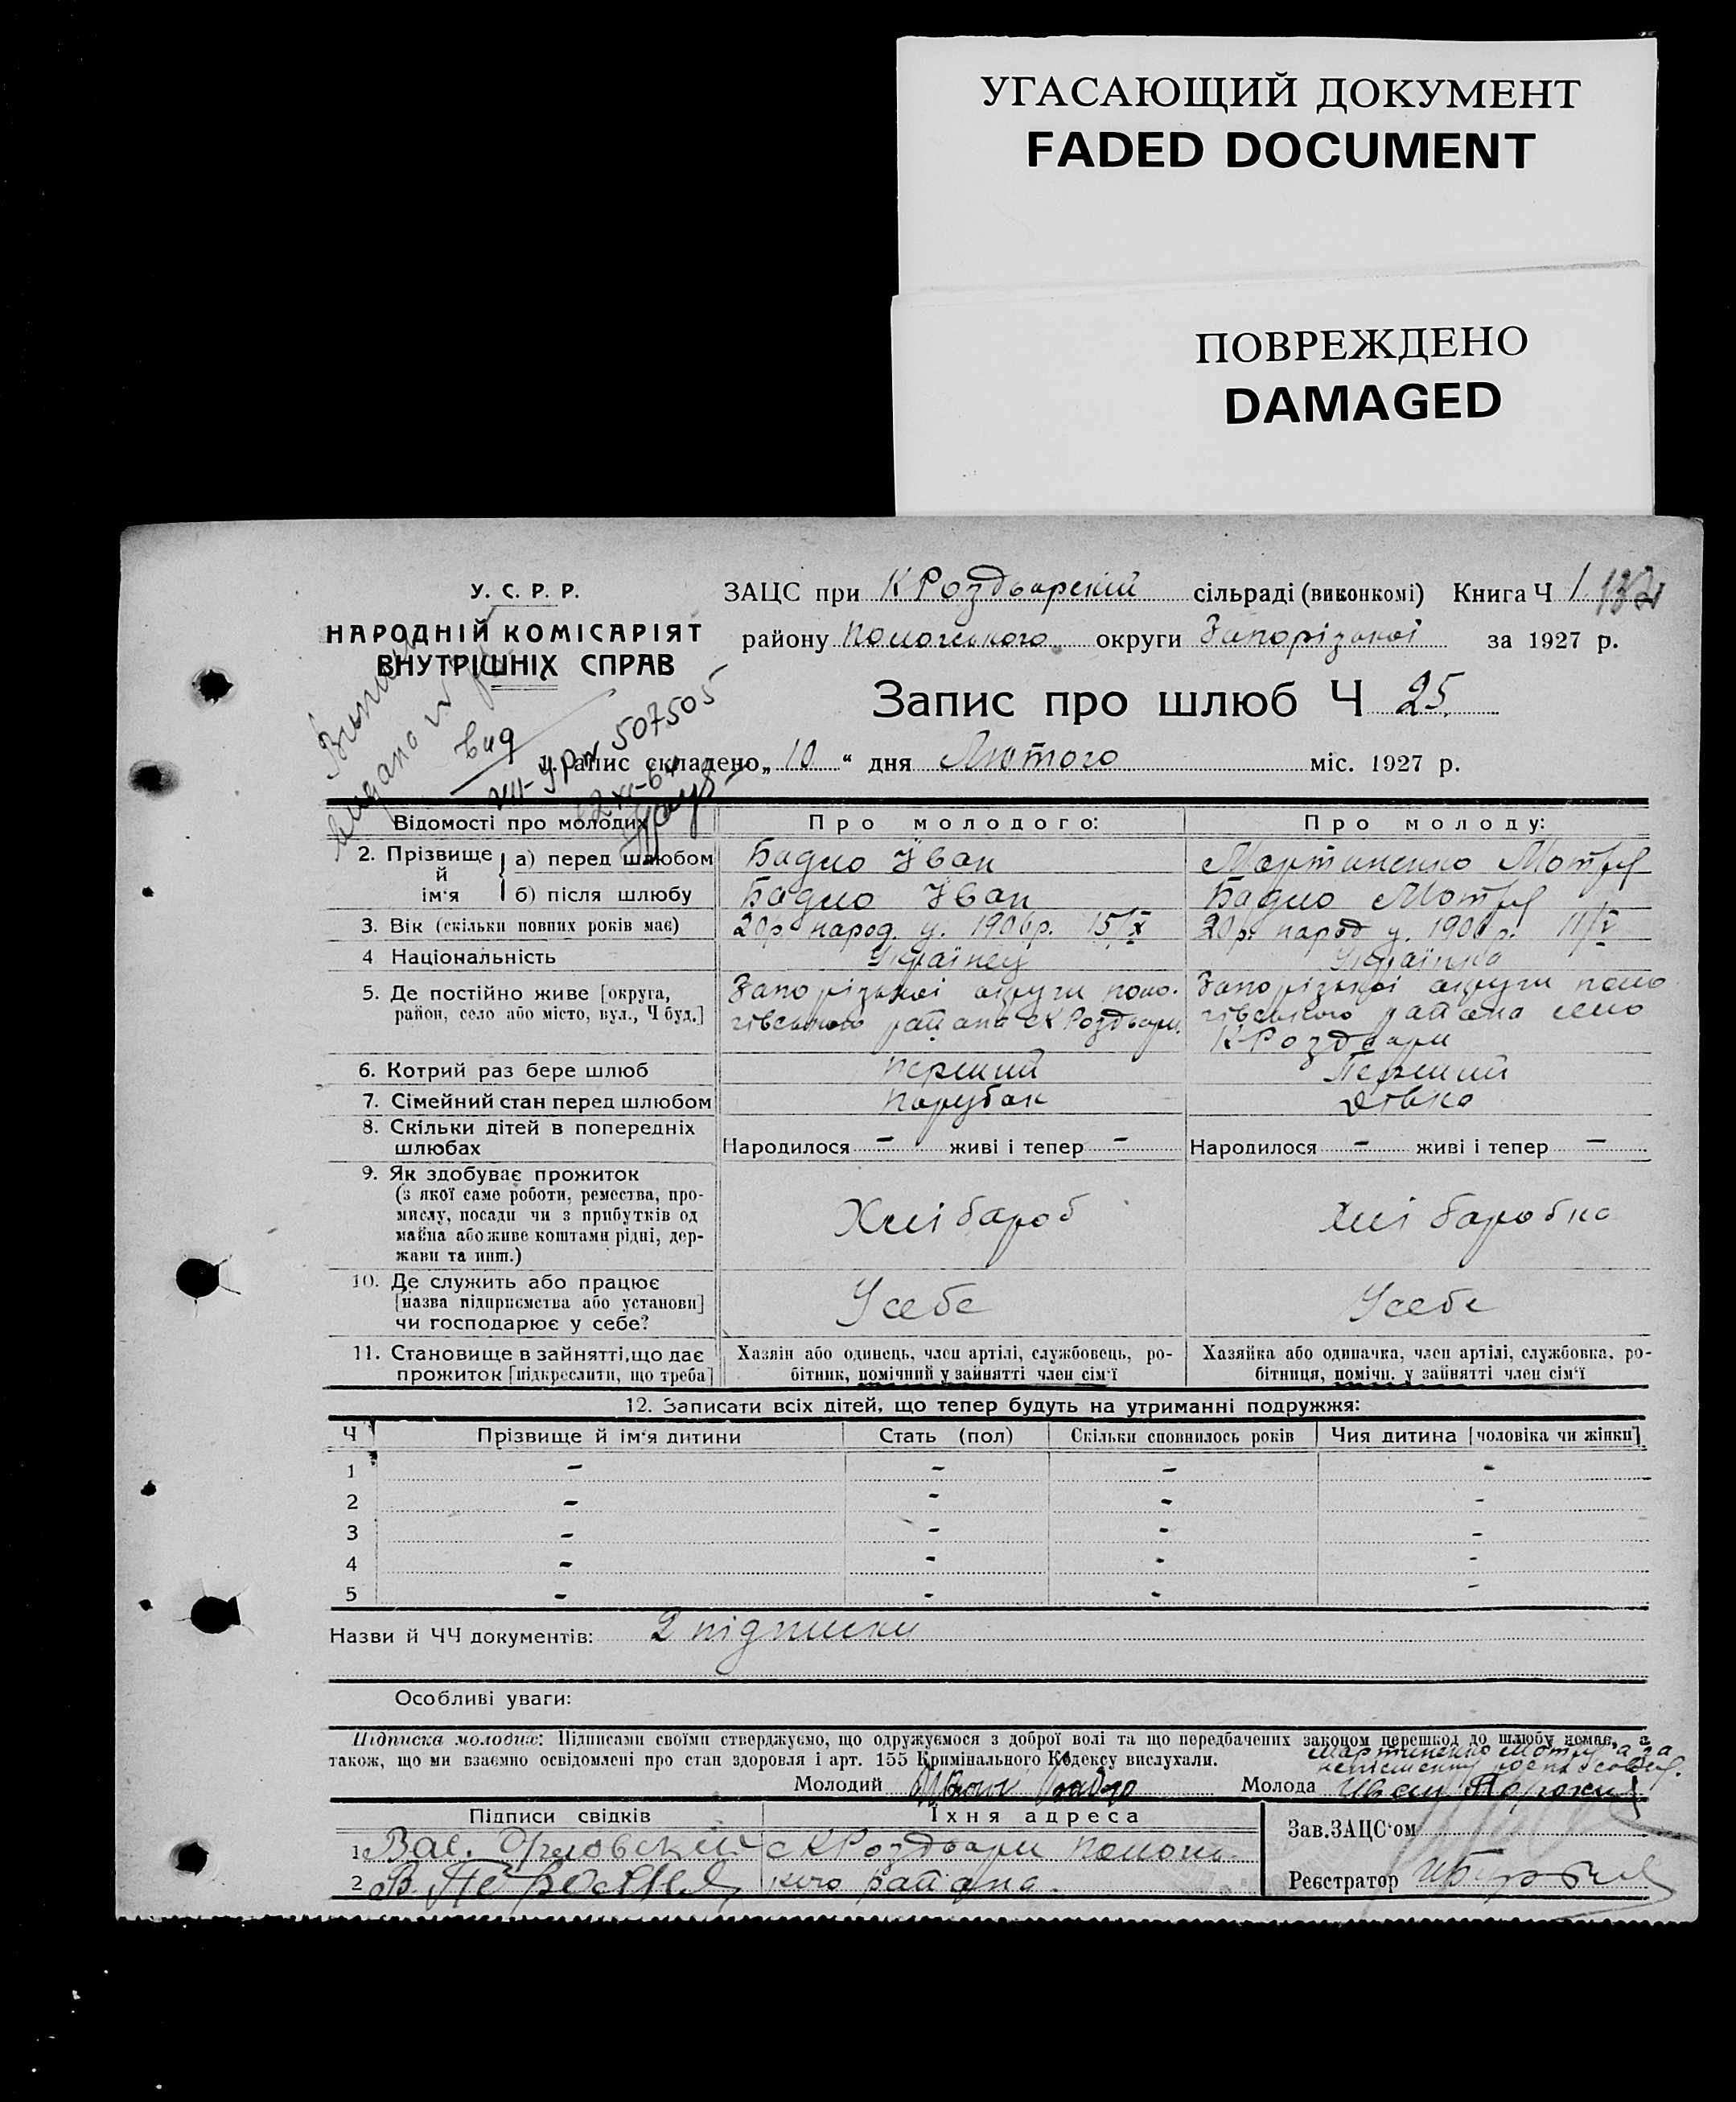 УГАСАЮЩИЙ ДОКУМЕНТ
FADED DOCUMENT
ПОВРЕЖДЕНО
DAMAGED
У. С. Р. Р.
НАРОДНІЙ КОМІСАРІЯТ
ВНУТРІШНІХ СПРАВ
ЗАЦС при КРоздорскій сільраді (виконкомі) Книга Ч 1
району Пологського округи Запорізької за 1927 р.
Запис про шлюб Ч 25
507505
1. Запис складено „ 10 “ дня Лютого міс. 1927 р.
Відомості про молодих
Про молодого:
Про молоду:
2. Прізвище й ім'я
а) перед шлюбом
Бадло Іван
Мартиненко Мотря
б) після шлюбу
Бадло Іван
Бадло Мотря
3. Вік (скільки повних років має)
20р. народ. у. 1906р. 15/X
20р. народ у. 1906р. 11/V
4 Національність
Українец
Українка
5. Де постійно живе [округа,
район, село або місто, вул., Ч буд.]
Запорізькоі округи поло-
гівського района с КРоздори.
Запорізькоі округи поло
гівського района село
К-Роздори
6. Котрий раз бере шлюб
Перший
Перший
7. Сімейний стан перед шлюбом
Парубак
Дівка
8. Скільки дітей в попередніх
шлюбах
Народилося - живі і тепер -
Народилося - живі і тепер -
9. Як здобуває прожиток
(з якої саме роботи, ремества, про-
мислу, посади чи з прибутків од
майна або живе коштами рідні, дер-
жави та инш.)
Хлібароб
Хлібаробка
10. Де служить або працює
[назва підприємства або установи]
чи господарює у себе?
Усебе
Усебе
11. Становище в зайнятті, що дає
прожиток [підкреслити, що треба]
Хазяїн або одинець, член артілі, службовець, ро-
бітник, помічний у зайнятті член сім'ї
Хазяйка або одиначка, член артілі, службовка, ро-
бітниця, помічн. у зайнятті член сім'ї
12. Записати всіх дітей, що тепер будуть на утриманні подружжя:
Ч Прізвище й ім'я дитини Стать (пол) Скільки сповнилось років Чия дитина [чоловіка чи жінки]
1 - - - -
2 - - - -
3 - - - -
4 - - - -
5 - - - -
Назви й ЧЧ документів: 2 підписки
Особливі уваги:
Підписка молодих: Підписами своїми стверджуємо, що одружуємося з доброї волі та що передбачених законом перешкод до шлюбу немає, а
також, що ми взаємно освідомлені про стан здоровля і арт. 155 Крімінального Кодексу вислухали.
Мартиненко Мотря а за
Молодий
Молода Иван
Підписи свідків
Їхня адреса
1. Вас. Орловский с КРоздори Пологь-
2 В. кого района.
Зав. ЗАЦС'ом
Реєстратор